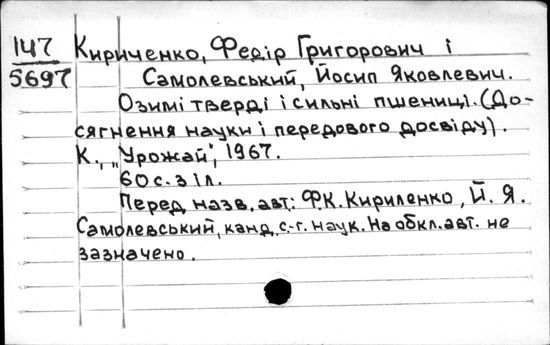 147 Кириченко, Федір Григорович і
5697 Самолевський, Йосип Яковлевич.
Озимі тверді і сильні пшениці. (До-
сягнення науки і передового досвіду).
К., „Урожай", 1967.
60 с. з іл.
Перед назв. авт.: Ф.К. Кириленко, Й. Я.
Самолевський, канд. с.-г. наук. На обкл. авт. не
зазначено.